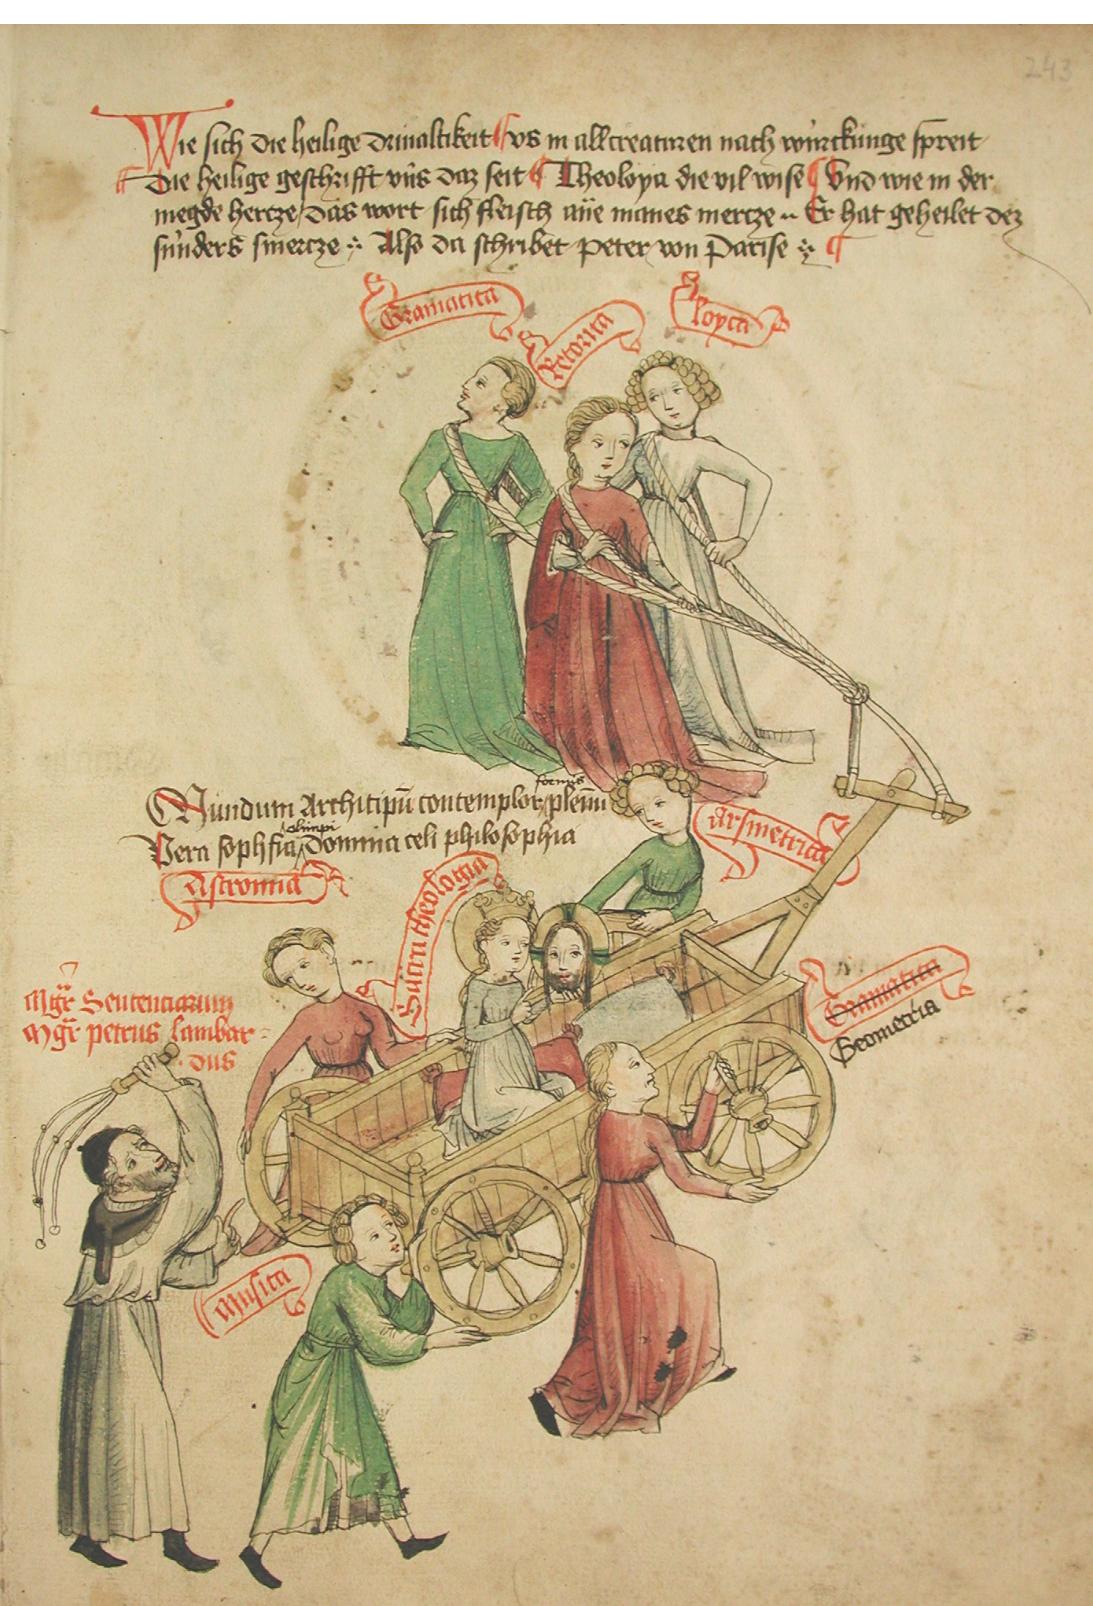 243
Wie sich die heilige drinaltikeit vs in all creaturen nach würckunge spreit
Die heilige geschrifft vns daz seit Theoloya die vil wise Vnd wie in der
megde hertze das wort sich fleisch ane manes mertze Er hat geheilet dez
sünders smertze Also da schribet peter von Parise
Gramatica
Retorica
loyca
formis
Mundum Architipum contemplor plenum
olimpi
Vera sophia Domina celi philosophia
Arsmetrica
Astronia
Sacra theologia
Mgr Sententiarum
Mgr petrus lambar
dus
Gramatica
Geometria
Musica